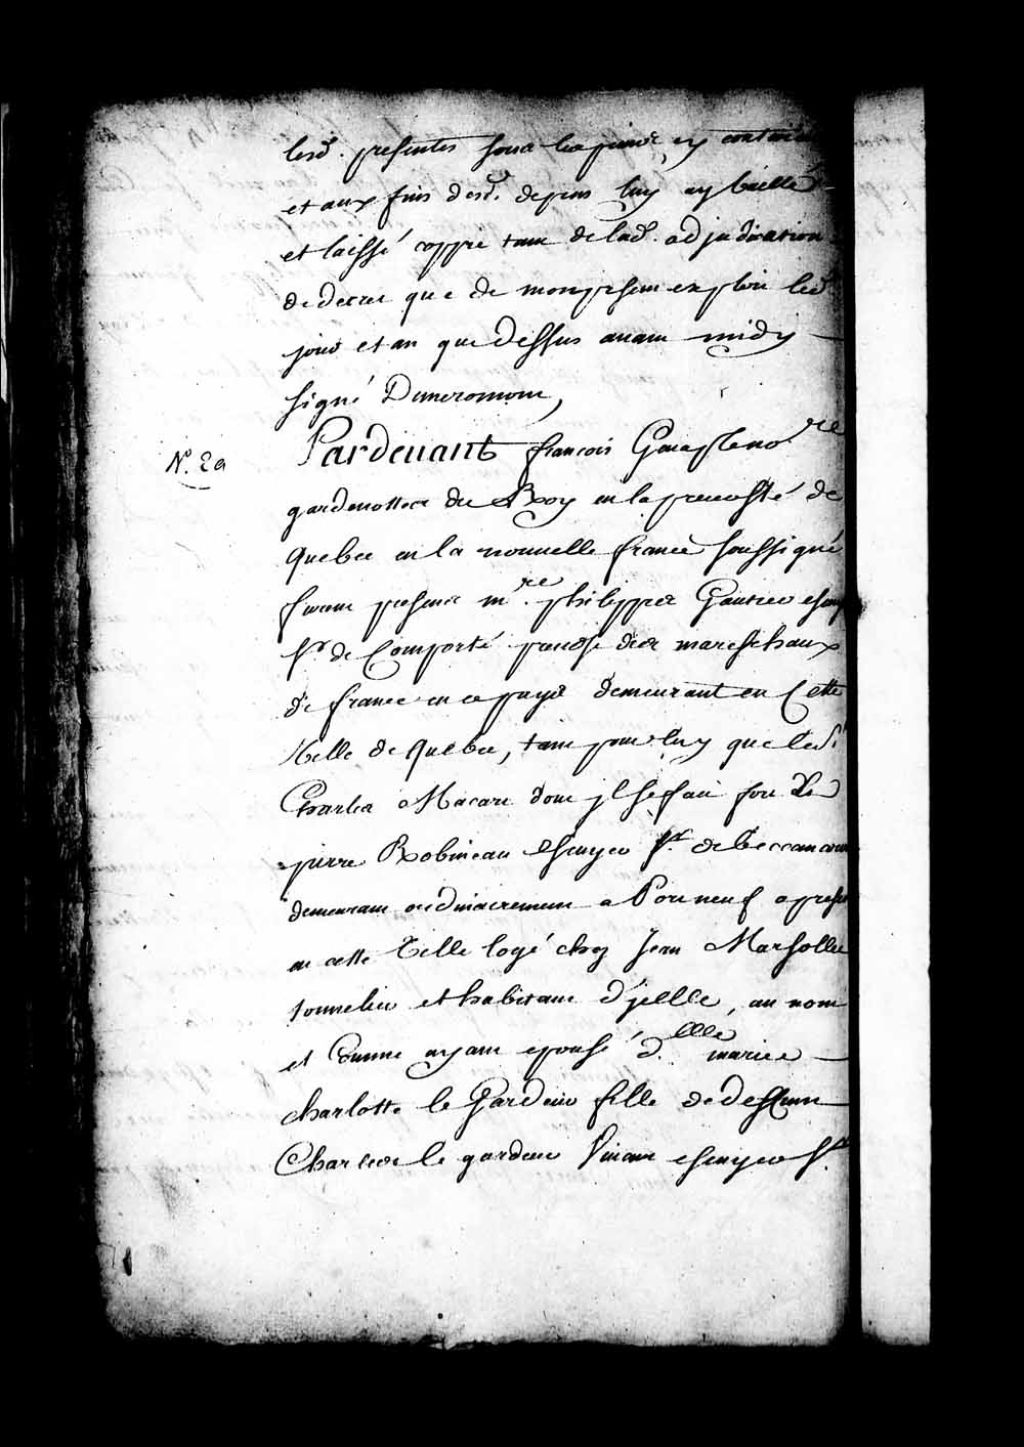 lesd. presentes sous les peines y contenues
et aux fins desd. depens luy ay baillé
et laissé coppie tant de lad. adjudication
de decret que de mon present exploit lesd.
jour et an que dessus avant midy
signé
N.º 29
Pardevant francois Genaple no.re
gardenottes du Roy en la prevosté de
Quebec en la nouvelle france soussigné
furent presens m.re philippes Gautier escuyer
sr. de Comporté prevost des mareschaux
de france en ce pays demeurant en Cette
Ville de Quebec, tant pour luy que led. sr.
Charles Macart dont jl se fait fort Et
pierre Robineau Escuyer sr. de beccancour
demeurant ordinairement a Portneuf a present
en cette Ville logé chez Jean Marsollet
tonnelier et habitant d'jcelle, au nom
et Comme ayant epousé d.elle marie
charlotte le Gardeur fille de deffunt
Charles le gardeur Vivant escuyer sr.